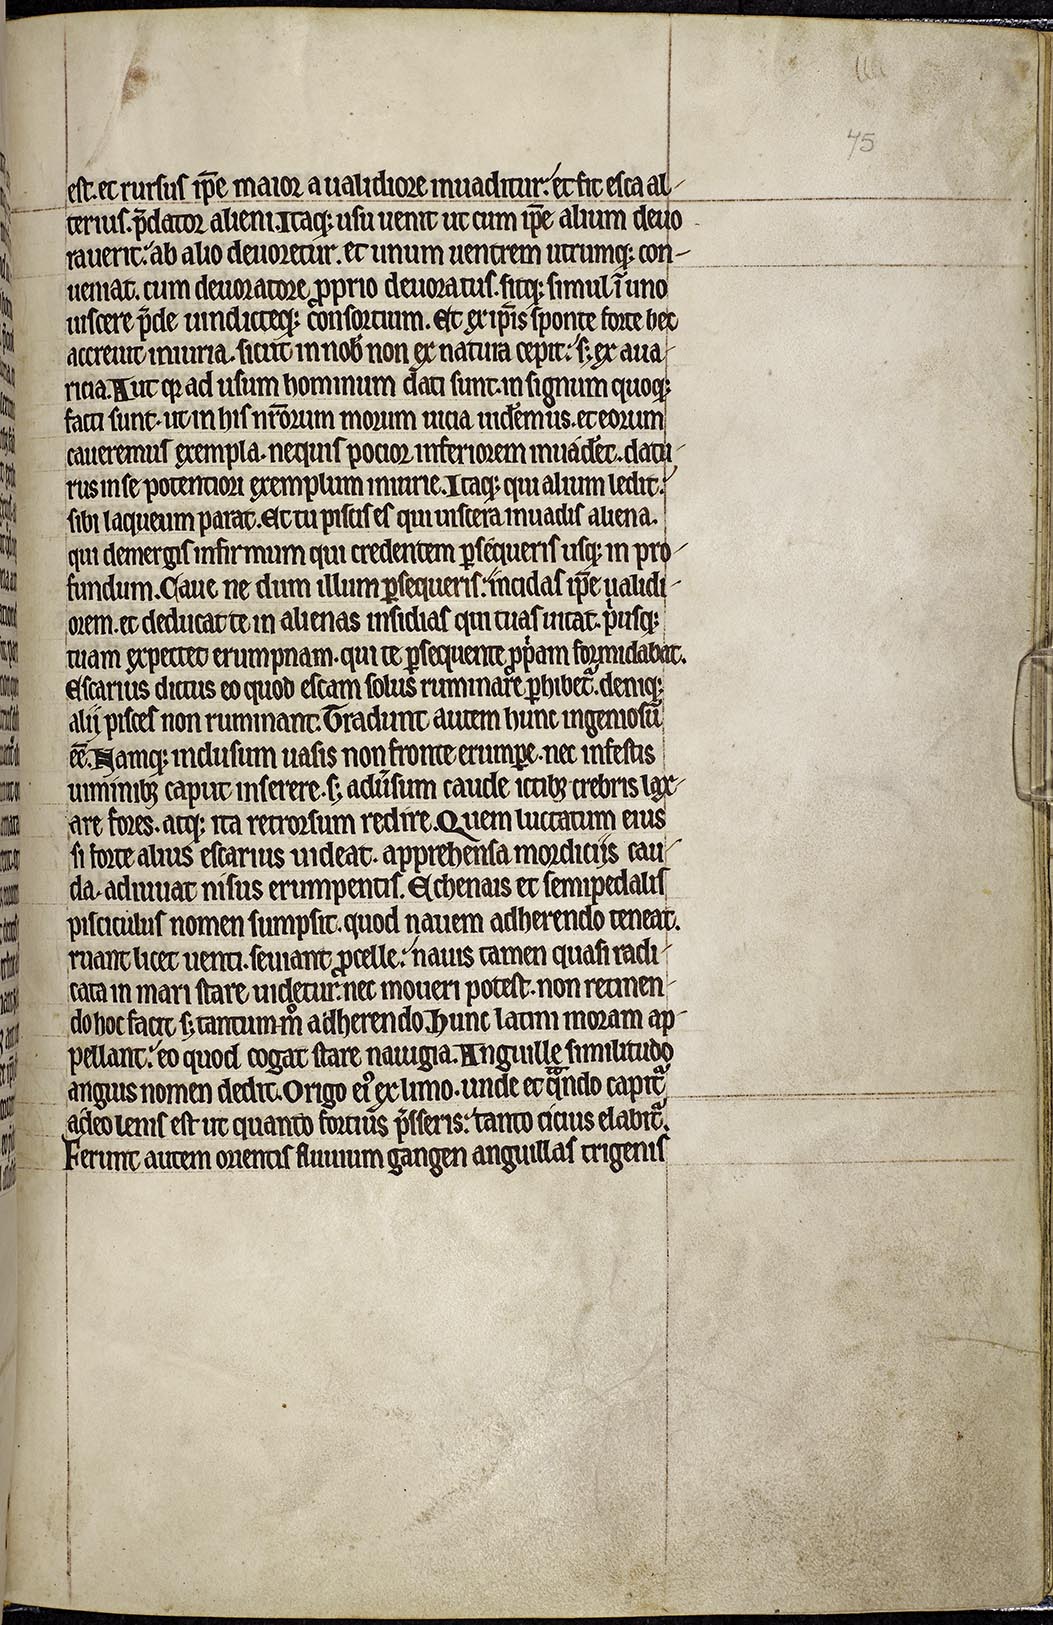 75
est. et rursus ip̄e maior a ualidiore inuaditur: et fit esca al-
terius. p̄dator alieni. Itaq; usu uenit ut cum ip̄e alium deuo
rauerit: ab alio deuoretur. et unum uentrem utrumq; con-
ueniat. cum deuoratore ꝓprio deuoratus. sitq; simul ī uno
uiscere p̄de uindicteq; consortium. Et ex ip̄is sponte forte hec
accreuit iniuria. sicut in nob̄ non ex natura cepit: s; ex aua-
ricia. Aut qꝫ ad usum hominum dati sunt. in signum quoq;
facti sunt. ut in his nr̄orum morum uicia uidemus. et eorum
caueremus exempla. nequis pocior inferiorem inuadet. datu-
rus in se potentiori exemplum iniurie. Itaq; qui alium ledit:
sibi laqueum parat. Et tu piscis es qui uiscera inuadis aliena.
qui demergis infirmum qui credentem ꝑsequeris usq; in pro-
fundum. Caue ne dum illum ꝑsequeris: incidas ip̄e ualidi-
orem. et deducat te in alienas insidias qui tuas uitat. piusq;
tuam expectet erumpnam. qui te ꝑsequente ppͥam formidabat.
Escarius dictus eo quod escam solus ruminare ꝑhibet᷑. deniq;
alij pisces non ruminant. Tradunt autem hunc ingeniosū
ēē. Namq; inclusum uasis non fronte erumꝑe. nec infestis
uiminibꝫ caput inserere. s; adūsum caude ictibꝫ crebris lax-
are fores. atq; ita retrorsum redire. Quem luctatum eius
si forte alius escarius uideat. apprehensa mordiciis cau-
da. adiuuat nisus erumpentis. Echenais et semipedalis
pisciculus nomen sumpsit. quod nauem adherendo teneat.
ruant licet uenti. seuiant ꝓcelle: nauis tamen quasi radi-
cata in mari stare uidetur: nec moueri potest. non retinen-
do hoc facit s; tantum mͦ adherendo. Hunc latini moram ap-
pellant: eo quod cogat stare nauigia. Anguille similitudo
anguis nomen dedit. Origo ei᷒ ex limo. unde et qᵃndo capit᷑
adeo lenis est ut quanto fortius p̄sseris: tanto cicius elabit᷑.
Ferunt autem orientis fluuium gangen anguillas trigenis